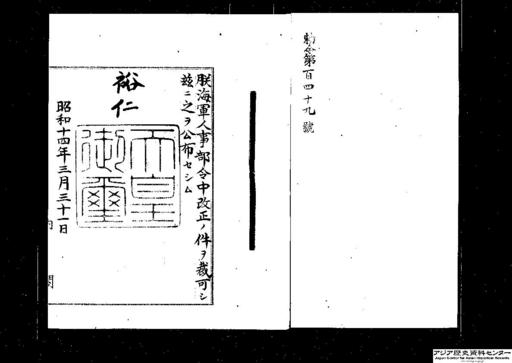 勅令第百四十九號
朕海軍人事部令中改正ノ件ヲ裁可シ
玆ニ之ヲ公布セシム
裕仁
天皇
御璽
昭和十四年三月三十一日
内閣
アジア歴史資料センター
Japan Center for Asian Historical Records